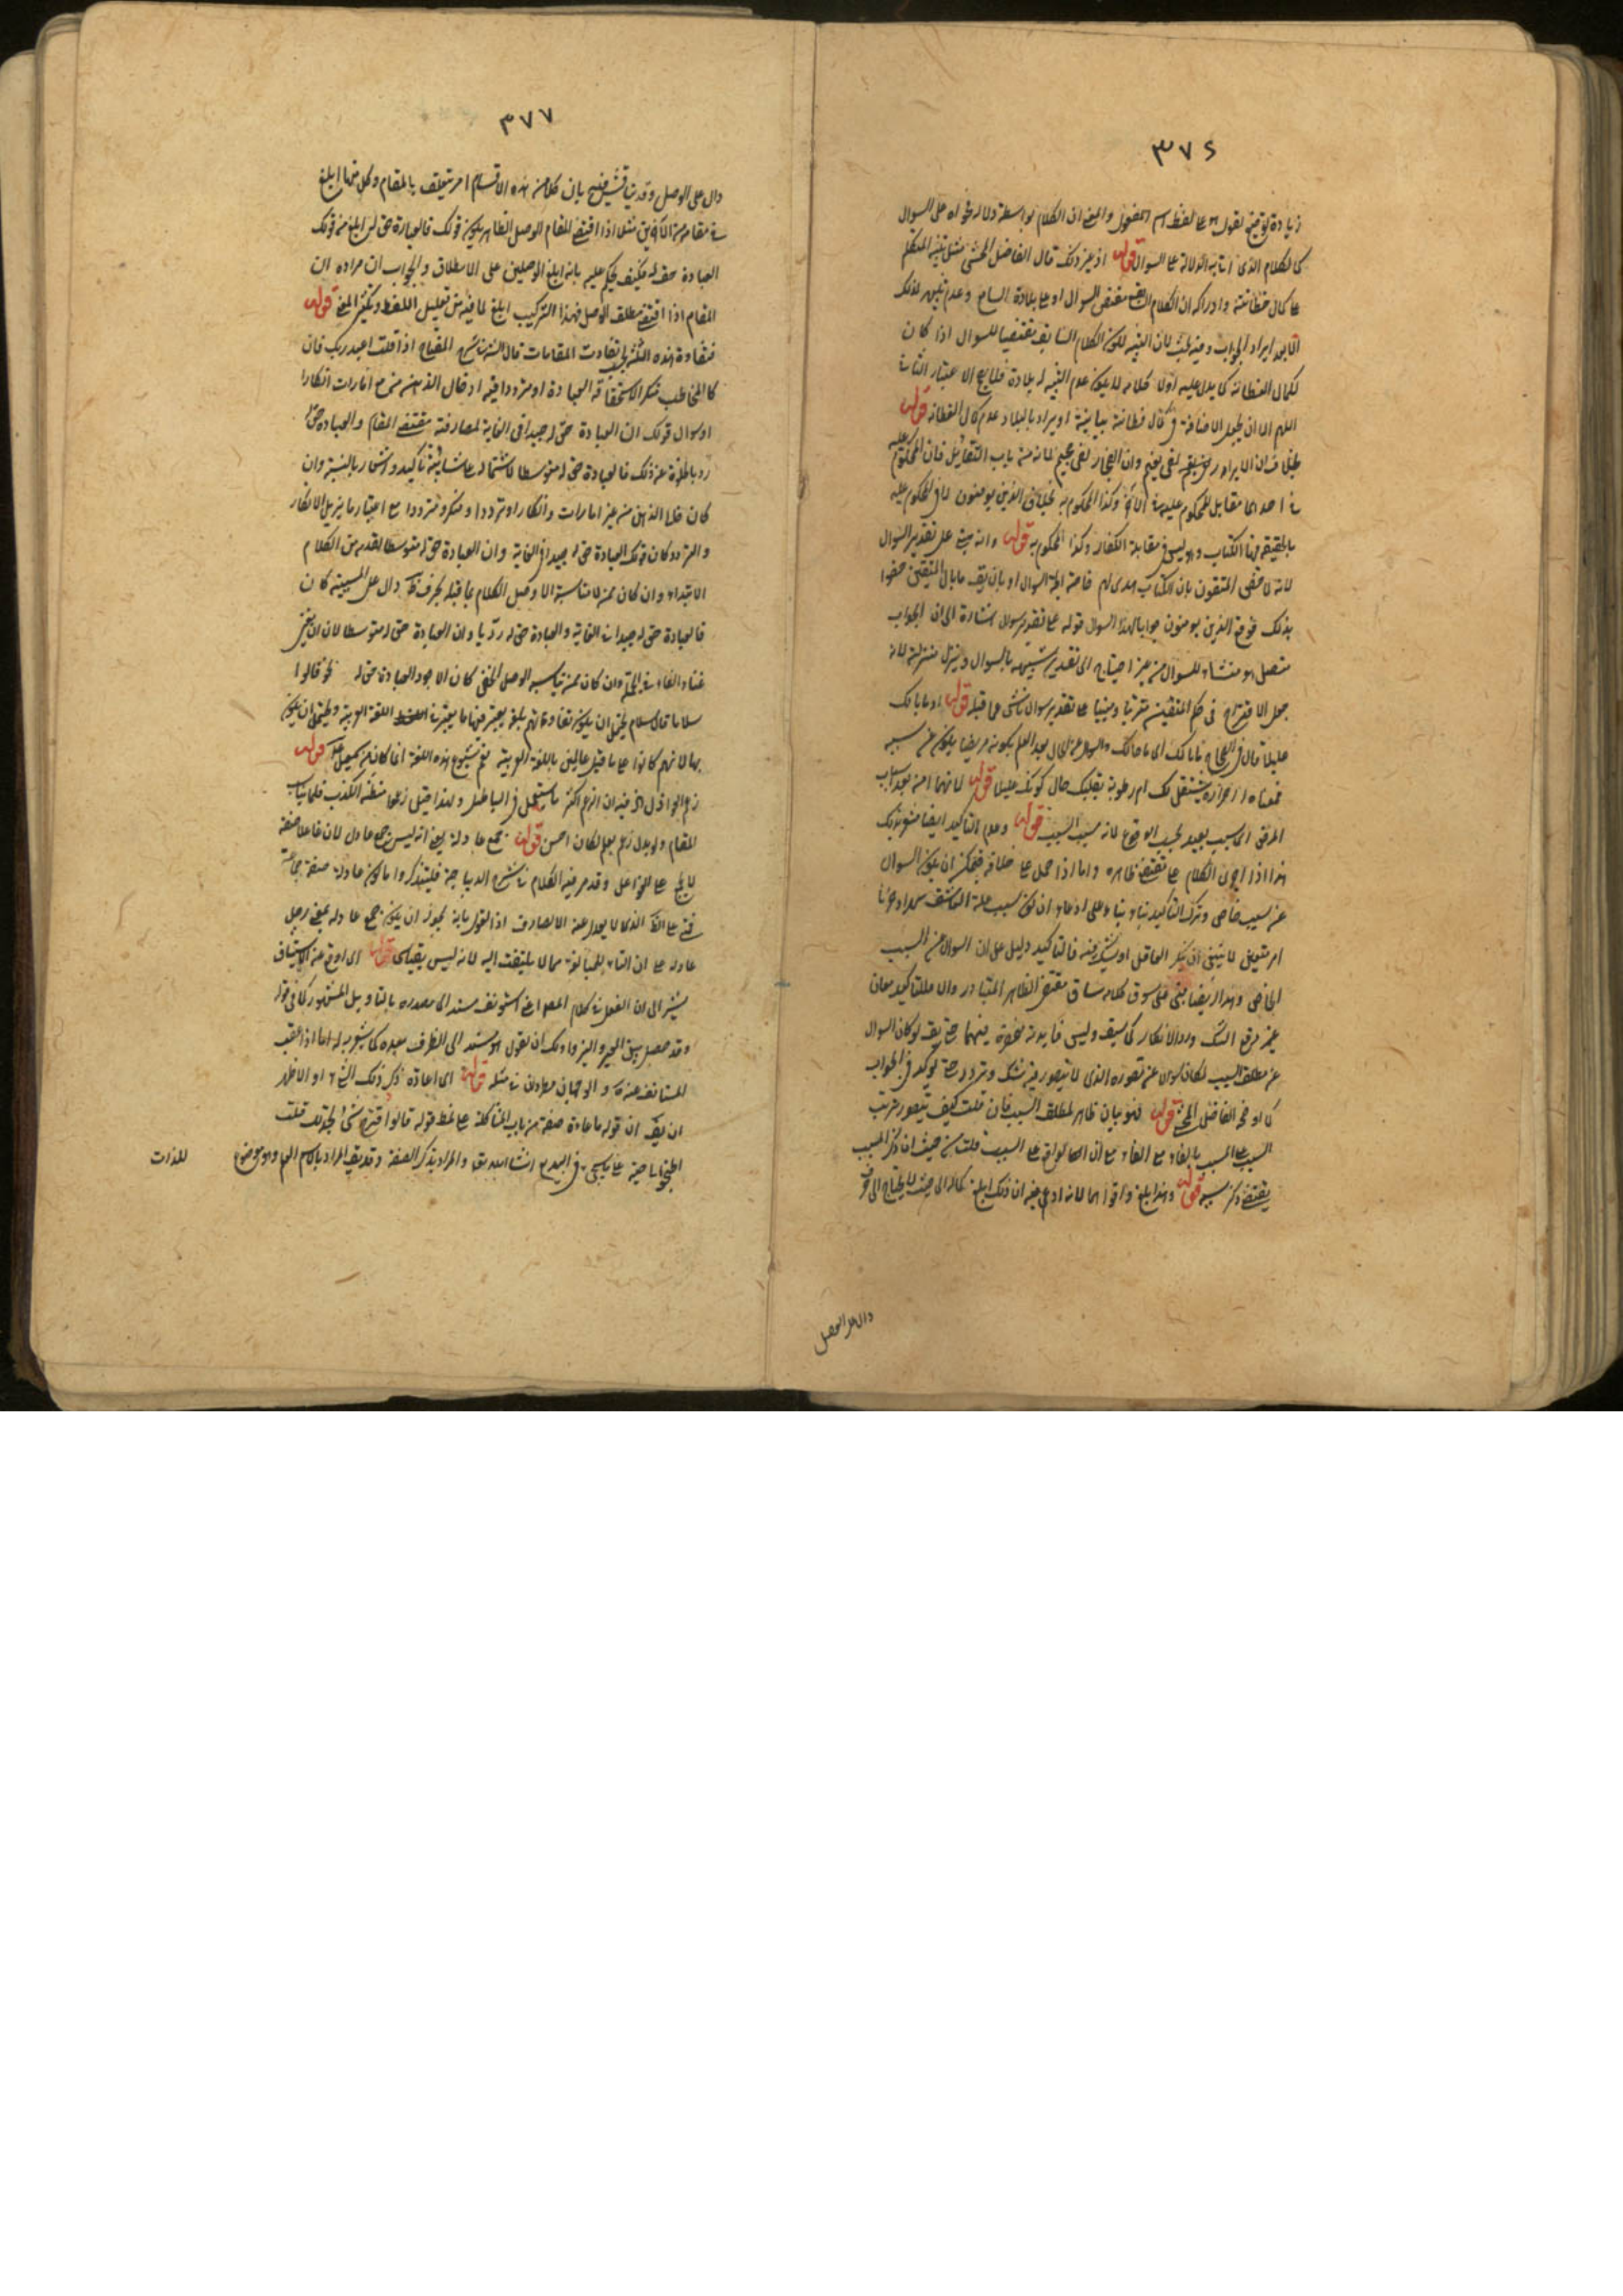 ٣٧٦
زيادة توضيح لقوله على لفظ اسم المفعول والمعنى ان الكلام بواسطة دلالة فحواه على السوال
كالكلام الذى اثابه الدلالة على السوال قوله او غير ذلك قال الفاضل المحشى مثل تنبيه المتكلم
على كمال فطانته وادراكه ان الكلام السابق مقتض للسوال او على بلادة السامع وعدم تنبهه لذلك
الا بعد ايراد الجواب وفيه بحث لان التنبيه لكون الكلام السابق مقتضيا للسوال اذا كان
لكمال الفطانة كما يدل عليه اول كلامه لا يكون عدم التنبيه له بلادة
اللهم الا ان يجعل الاضافة فى كمال فطانة بيانية او يراد بالبلادة عدم كمال الفطانة قوله
لفى نعيم وان الفجار لفى جحيم لانه من باب التقابل فان المحكوم عليه
فى احدهما مقابل للمحكوم عليه فى الاخر وكذا المحكوم به بخلاف الذين يومنون لان المحكوم عليه
بالحقيقة فيها الكتاب وهو ليس فى مقابلة الكفار وكذا المحكوم به قوله وانه مبنى على تقدير السوال
لانه لما خص المتقون بان الكتاب هدى لهم فاتجه السوال او بان يقال ما بال المتقين خصوا
بذلك فوقع الذين يومنون جوابا لهذا السوال قوله على تقدير سوال اشارة الى ان الجواب
متصل هو منشاء للسوال من غير احتياج الى تقدير تشبيهه بالسوال وتنزيله منزلته لانه
جعل الافتتاح فى حكم المتقين مرتبا ومبنيا على تقدير سوال ناشى مما قبله قوله اى ما بالك
عليلا قال فى الصحاح ما بالك اى ما حالك والسوال عن الحال بعد العلم بكونه مريضا يكون عن سببه
فمعناه احرارة يشتغل بك ام رطوبة بقلبك حال كونك عليلا قوله لانهما من بعد اسباب
المرض اى سبب بعيد بحسب الوقوع لانه سبب السبب قوله وعدم التاكيد ايضا مشعر بذلك
هذا اذا اجرى الكلام على مقتضى ظاهره واما اذا حمل على خلافه فيمكن ان يكون السوال
عن سبب خاص وترك التاكيد بناء على ادعاء ان كون سبب علة العاشق سهرا وحزنا
امر متعين لا ينبغى ان ينكر العاقل او يشك فيه فالتاكيد دليل على ان السوال عن السبب
الخاص وهذا ايضا مبنى على سوق كلامه مساق مقتضى الظاهر المتبادر والا فللتاكيد معان
غير رفع الشك ورد الانكار كما سبق وليس فايدته منحصرة فيهما حتى يقال لو كان السوال
عن مطلق السبب لكان سوالا عن تصوره الذى لا يتصور فيه شك وتردد حتى يوكد فى الجواب
كما وقع الفاضل المحشى قوله فهو بيان ظاهر لمطلق السبب فان قلت كيف يتصور ترتب
السبب على المسبب بالفاء مع الفاء مع ان الحال بالعكس قلت من حيث ان ذكر المسبب
يقتضى ذكر سببه قوله وهذا ابلغ واقواهما لانه ادعى فيه ان ذلك ابلغ كماله الى حيث لا يحتاج الى حرف
دال على الوصل
٣٧٧
دال على الوصل وقد يناقش فيه بان كلا من هذه الاقسام امر يتعلق بالمقام وكل منها ابلغ
فى مقامه من الاخرين مثلا اذا اقتضى المقام الوصل الظاهر يكون قولك فالعبادة حق له ابلغ من قولك
العبادة حق له فكيف يحكم عليه بانه ابلغ الوصلين على الاطلاق والجواب ان مراده ان
المقام اذا اقتضى مطلق الوصل فهذا التركيب ابلغ لما فيه من تقليل اللفظ وتكثير المعنى قوله
فتفاوت هذه الثلثة بحسب تفاوت المقامات قال الشيخ فى شرح المفتاح اذا قلت اعبد ربك فان
كان المخاطب منكرا لاستحقاقه العبادة او مترددا فيه او خالى الذهن مع امارات انكار
او سوال قولك ان العبادة حق له جيدا فى الغاية لمصادفته مقتضى المقام والعبادة حق له
رديا لخلوه عن ذلك فالعبادة حق له متوسطا لاشتماله على شائبة تاكيد واشعار بالنسبة وان
كان خالى الذهن من غير امارات وانكار او تردد او منكرا ومترددا مع اعتبار ما يزيل الانكار
والتردد كان قولك العبادة حق له جيدا فى الغاية وان العبادة حق له متوسطا لقدم من الكلام
الابتداء وان كان ممن لا يناسبه الا وصل الكلام بما قبله بحرف ظاهر دال على السببية كان
فالعبادة حق له جيدا فى الغاية والعبادة حق له رديا وان العبادة حق له متوسطا لان ان يغنى
غناء الفاء فى الجملة وان كان ممن يناسبه الوصل الخفى كان الاجود العبادة حق له نحو قالوا
سلاما قال سلام يحتمل ان يكون تقاولهم بلغة يعتبر فيها ما يعتبر فى اللغة العربية ويحتمل ان يكون
بها لانهم كانوا على ما قيل عالمين باللغة العربية نعم شيوع هذه اللغة انما كان من اسمعيل عم قوله
زعم العواذل اذ فيه ان الزعم اكثر ما يستعمل فى الباطل ولهذا قيل زعموا مظنة الكذب فلا يناسب
المقام ولو بدل زعم بعلم لكان احسن قوله جمع عاذلة يعنى انه ليس جمع عاذل لان فاعلا صفة
لا يجمع على فواعل وقد مر فيه الكلام فى شرح الديباجة فليتذكر واما كون عاذلة صفة جماعة
فبنى على الظاهر الذى لا يعدل عنه الا لصارف اذ القول بانه يجوز ان يكون جمع عاذلة بمعنى رجل
عاذلة على ان التاء للمبالغة مما لا يلتفت اليه لانه ليس بقياسى قوله اى اوقع عنه الاستيناف
يشير الى ان الفعل فى كلام المصنف اعنى استونف مسند الى مصدره بالتاويل المشهور كما فى قوله
وقد حيل بين العير والنزوان ولك ان تقول هو مسند الى الظرف بعده كما يشعر به
المستانف عنه والوجهان معادان فى مثله قوله اى اعادة ذكر ذلك الشئ او الاظهر
ان يقال ان قوله باعادة صفته من باب المشاكلة على نمط قوله قالوا اقترح شئا نجد لك
اطبخوا لى جبة على ما سيجئ فى البديع ان شاء الله تعالى والمراد بذكر الصفة
للذات